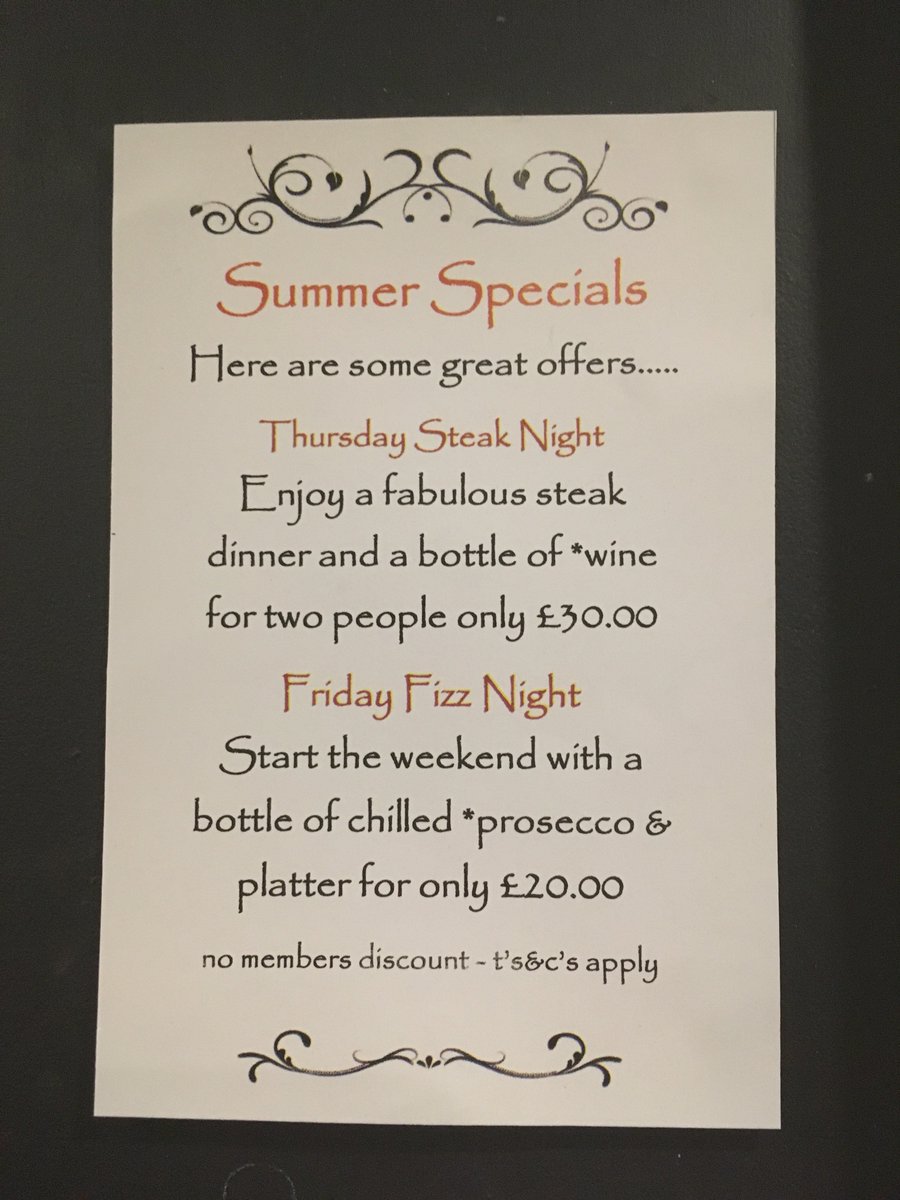 Summer Specials
Here are some great offers.....
Thursday Steak Night
Enjoy a fabulous steak
dinner and a bottle of *wine
for two people only £30.00
Friday Fizz Night
Start the weekend with a
bottle of chilled *prosecco &
platter for only £20.00
no members discount - t's&c's apply